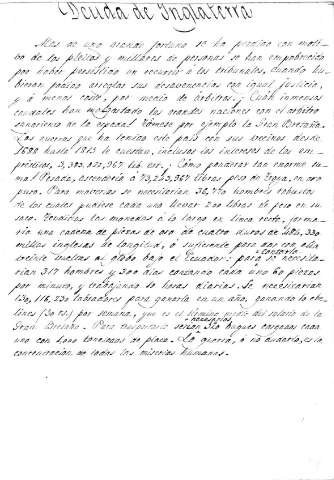 Deuda de Inglaterra
Mas de una grande fortuna se ha perdido con moti-
vo de los pleitos y millares de personas se han empobrecido
por haber persistido en recurrir á los tribunales, cuando hu-
bieran podido arreglar sus desavenencias con igual justicia,
y á menos coste, por medio de árbitros. ¡Cuán inmensos
caudales han malgastado las grandes naciones con el arbitro
sanguinario de la espada! Tómese por ejemplo la Gran Bretaña.
Las guerras que ha tenido este país con sus vecinos desde
1688 hasta 1815 le cuestan, inclusos los intereses de los em-
préstitos, libs est. ¡Cómo ponderar tan enorme su-
ma! Pesada, ascendería á libras peso de Troya, en oro
puro. Para moverlas se necesitarían hombres robustos
de los cuales pudiese cada uno llevar 200 libras de peso en su
saco. Tendidas las monedas á lo largo en línea recta, forma-
ría una cadena de piezas de oro de cuatro duros de
millas inglesas de longitud, ó suficiente para dar con ella
veinte vueltas al globo bajo el Ecuador: para contarla se necesita-
rían 317 hombres y 300 días contando cada uno 60 piezas
por minuto, y trabajando 10 horas diarias. Se necesitarían
labradores para ganarla en un año, ganando 10 che-
lines por semana, que es el término medio del salario de la
Gran Bretaña. Para transportarlo serían necesarios buques cargados cada
uno con toneladas de plata. La guerra, á no dudarlo, es la
concentración de todas las miserias humanas.